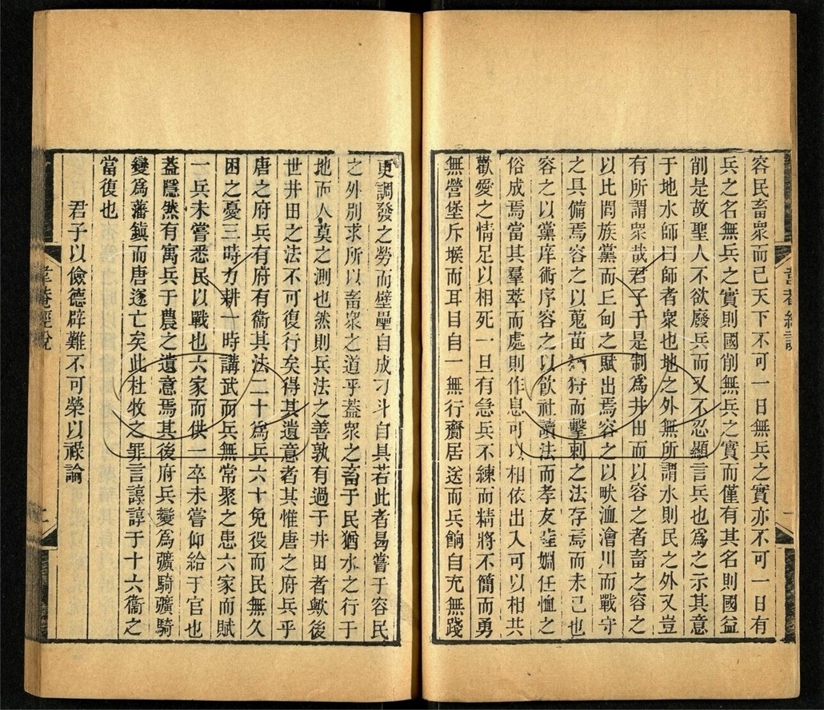 容民畜眾而已天下不可一日無兵之實亦不可一日有
兵之名無兵之實則國削無兵之實而僅有其名則國益
削是故聖人不欲廢兵而又不忍顯言兵也爲之示其意
于地水師曰師者眾也地之外無所謂水則民之外又豈
有所謂眾哉君子于是制爲井田而以容之者畜之容之
以比閭族黨而丘甸之賦出焉容之以畎洫澮川而戰守
之具備焉容之以蒐苗獮狩而擊刺之法存焉而未已也
容之以黨庠術序容之以飲社讀法而孝友睦婣任恤之
俗成焉當其羣萃而處則作息可以相依出入可以相共
歡愛之情足以相死一旦有急兵不練而精將不簡而勇
無營堡斥堠而耳目自一無行齎居送而兵餉自充無踐
更調發之勞而壁壘自成刁斗自具若此者曷嘗于容民
之外別求所以畜眾之道乎蓋眾之畜于民猶水之行于
地而人莫之測也然則兵法之善孰有過于井田者歟後
世井田之法不可復行矣得其遺意者其惟唐之府兵乎
唐之府兵有府有衞其法二十爲兵六十免役而民無久
困之憂三時力耕一時講武而兵無常聚之患六家而賦
一兵未嘗悉民以戰也六家而供一卒未嘗仰給于官也
蓋隱然有寓兵于農之遺意焉其後府兵變爲彍騎彍騎
變爲藩鎮而唐遂亡矣此杜牧之罪言諄諄于十六衞之
當復也
君子以儉德辟難不可榮以祿論
經說
二